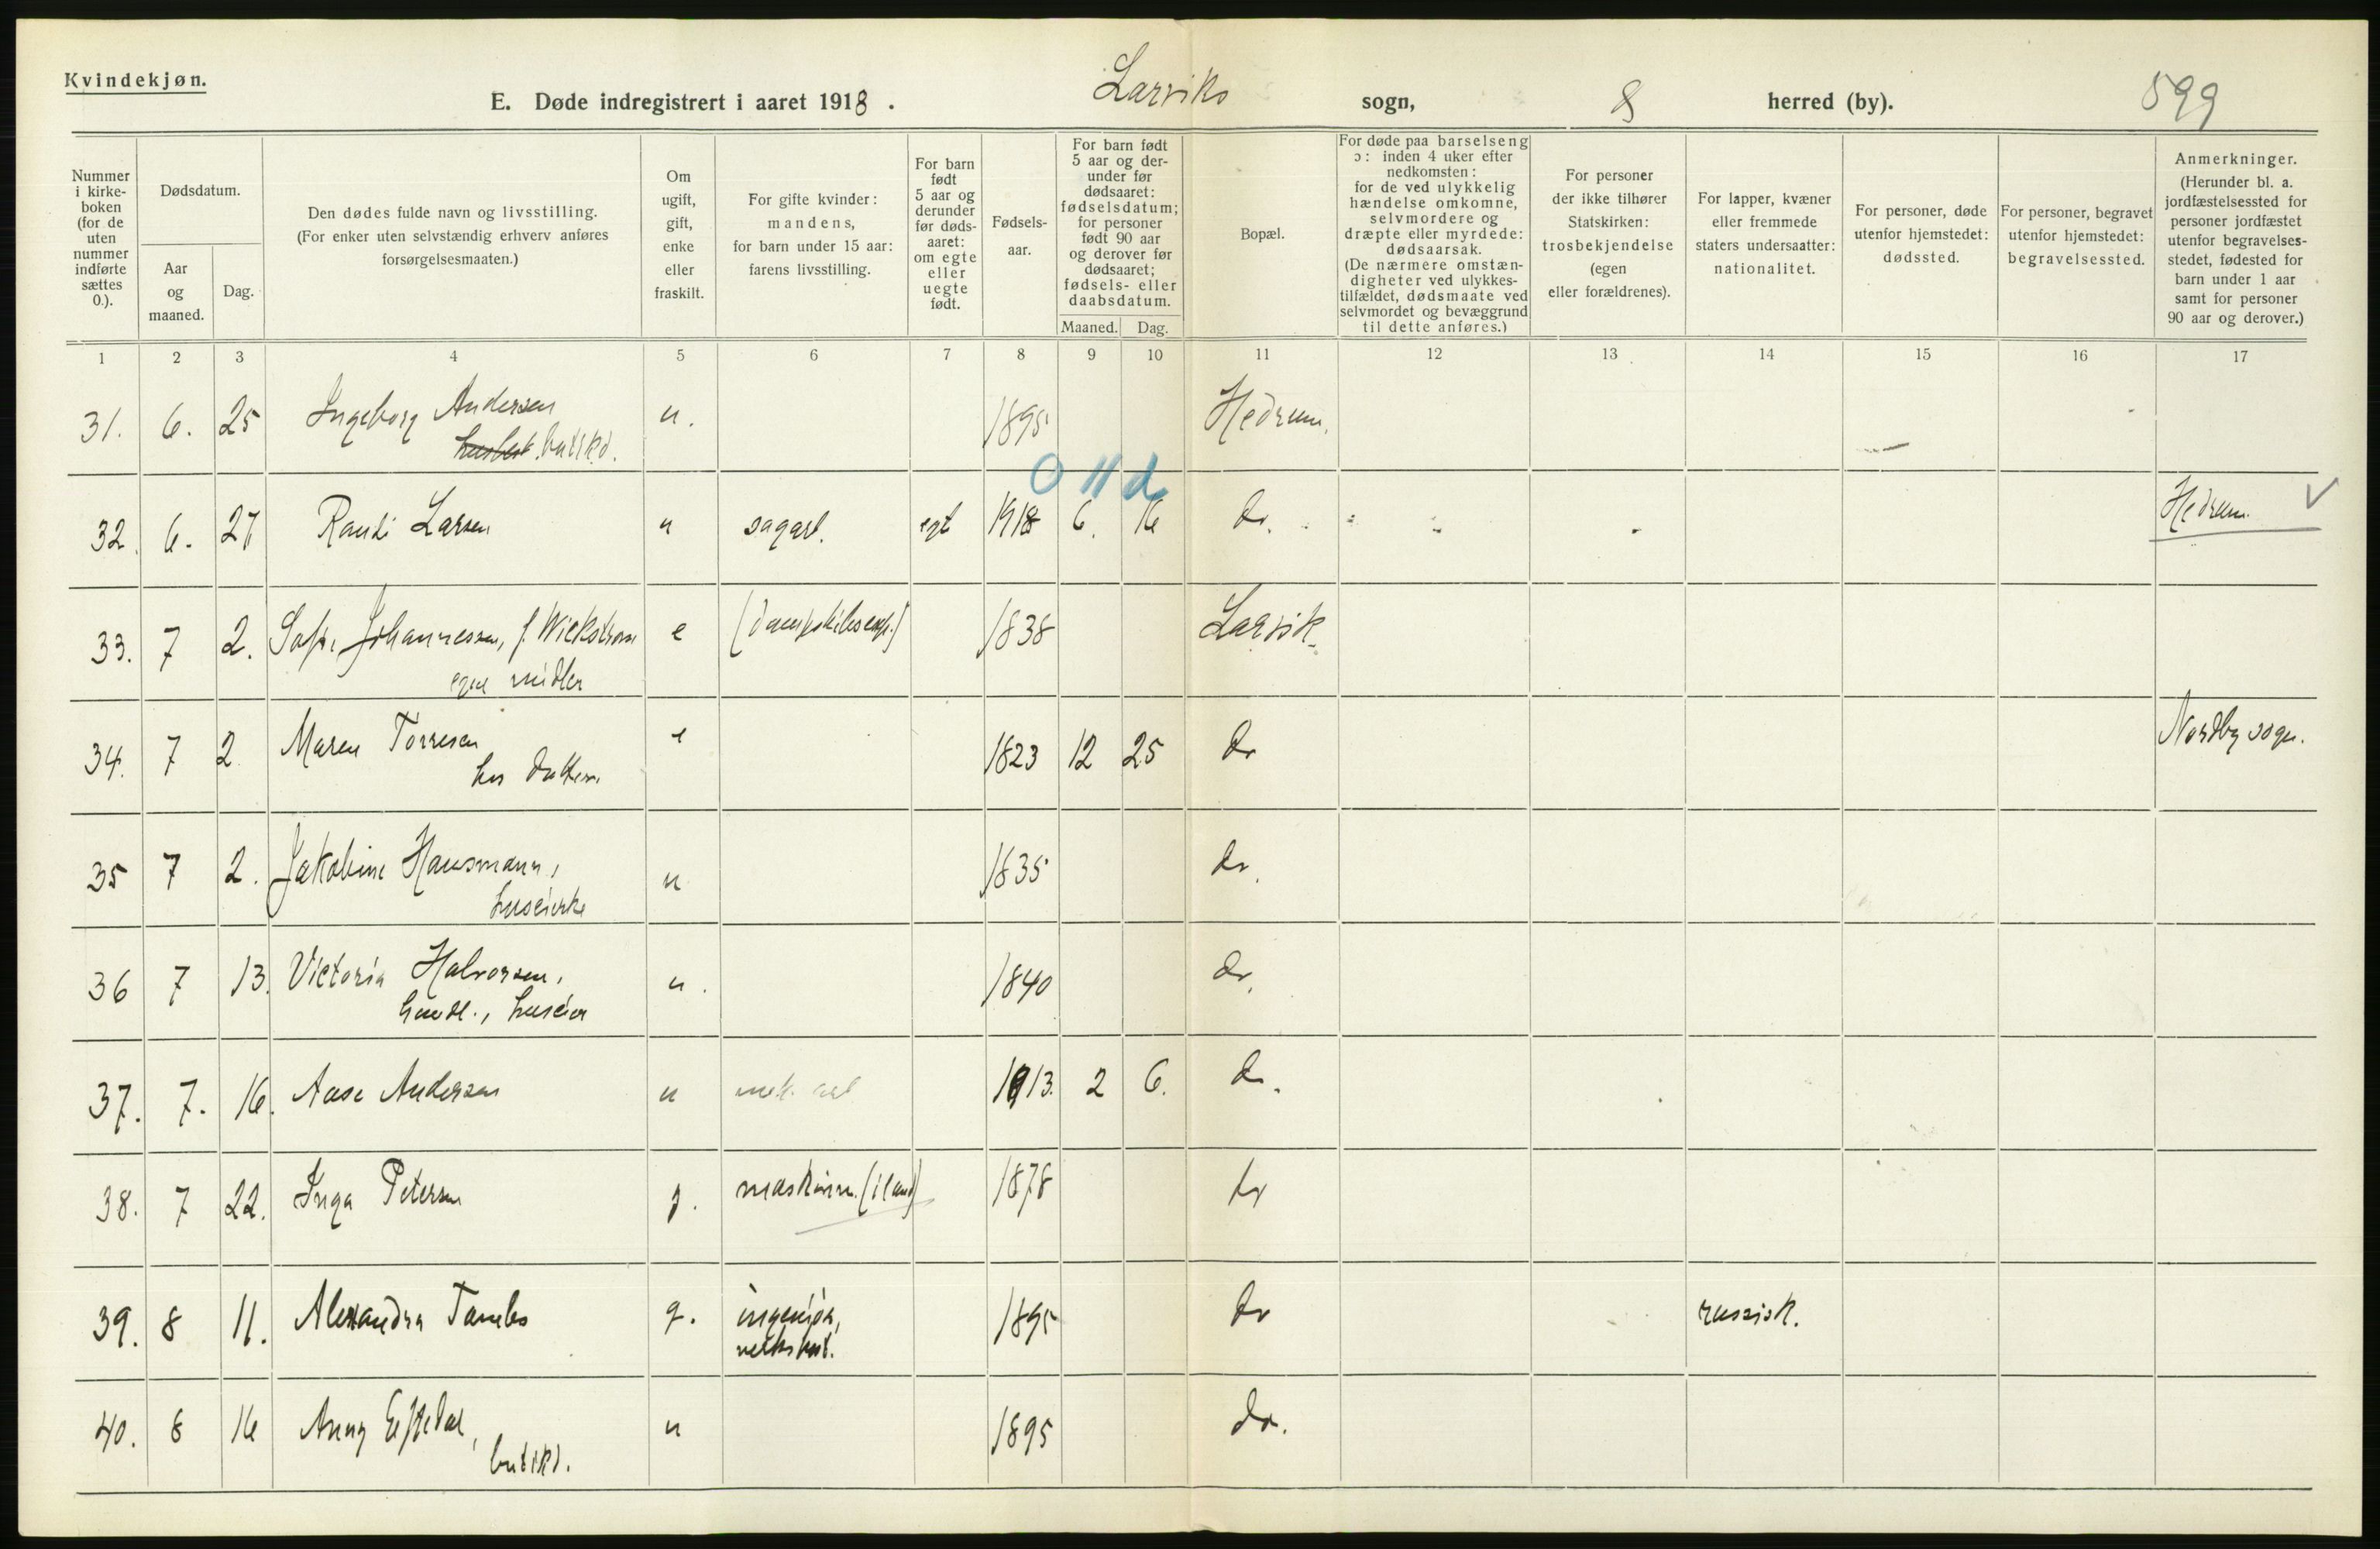 Kvindekjøn.
E. Døde indregistrert i aaret 1918. Larviks sogn, 8 herred (by). 599
Nummer i kirkeboken (for de uten nummer indførte sættes 0.).
Dødsdatum.
Aar og maaned.
Dag.
Den dødes fulde navn og livsstilling.
(For enker uten selvstændig erhverv anføres forsørgelsesmaaten.)
Om ugift, gift, enke eller fraskilt.
For gifte kvinder: mandens, for barn under 15 aar: farens livsstilling.
For barn født 5 aar og derunder før dødsaaret: om egte eller uegte født.
Fødselsaar.
For barn født 5 aar og derunder før dødsaaret: fødselsdatum; for personer født 90 aar og derover før dødsaaret; fødsels- eller daabsdatum.
Maaned. Dag.
Bopæl.
For døde paa barselseng ɔ: inden 4 uker efter nedkomsten: for de ved ulykkelig hændelse omkomne, selvmordere og dræpte eller myrdede: dødsaarsak. (De nærmere omstændigheter ved ulykkestilfældet, dødsmaate ved selvmordet og bevæggrund til dette anføres.)
For personer der ikke tilhører Statskirken: trosbekjendelse (egen eller forældrenes).
For lapper, kvæner eller fremmede staters undersaatter: nationalitet.
For personer, døde utenfor hjemstedet: dødssted.
For personer, begravet utenfor hjemstedet: begravelsessted.
Anmerkninger. (Herunder bl. a. jordfæstelsessted for personer jordfæstet utenfor begravelsesstedet, fødested for barn under 1 aar samt for personer 90 aar og derover.)
1 2 3 4 5 6 7 8 9 10 11 12 13 14 15 16 17
31. 6. 25 Ingeborg Andersen u. 1895 Hedrum.
husbest. butikd.
0 11 d
32. 6. 27 Randi Larsen u sagarb. egt 1918 6. 16 do. Hedrum. ✓
33. 7 2. Sofie Johannessen, f. Wickstrøm e (dampskibsexp.) 1838 Larvik.
egne midler
34. 7 2 Maren Torresen e 1823 12 25 do Nordby sogn.
hos datteren
35 7 2. Jakobine Hausmann, u 1835 do.
huseierske
36 7 13. Victoria Halvorsen, u. 1840 do.
handl., huseier
37. 7. 16. Aase Andersen u mek. arb 1913. 2 6. do.
38. 7 22. Inga Petersen g. maskinm. (iland) 1878 do
39. 8 11. Alexandra Tambs g. ingeniør, 1895 do russisk.
40. 8 16 Anny Eftedal, u 1895 do.
butikd.